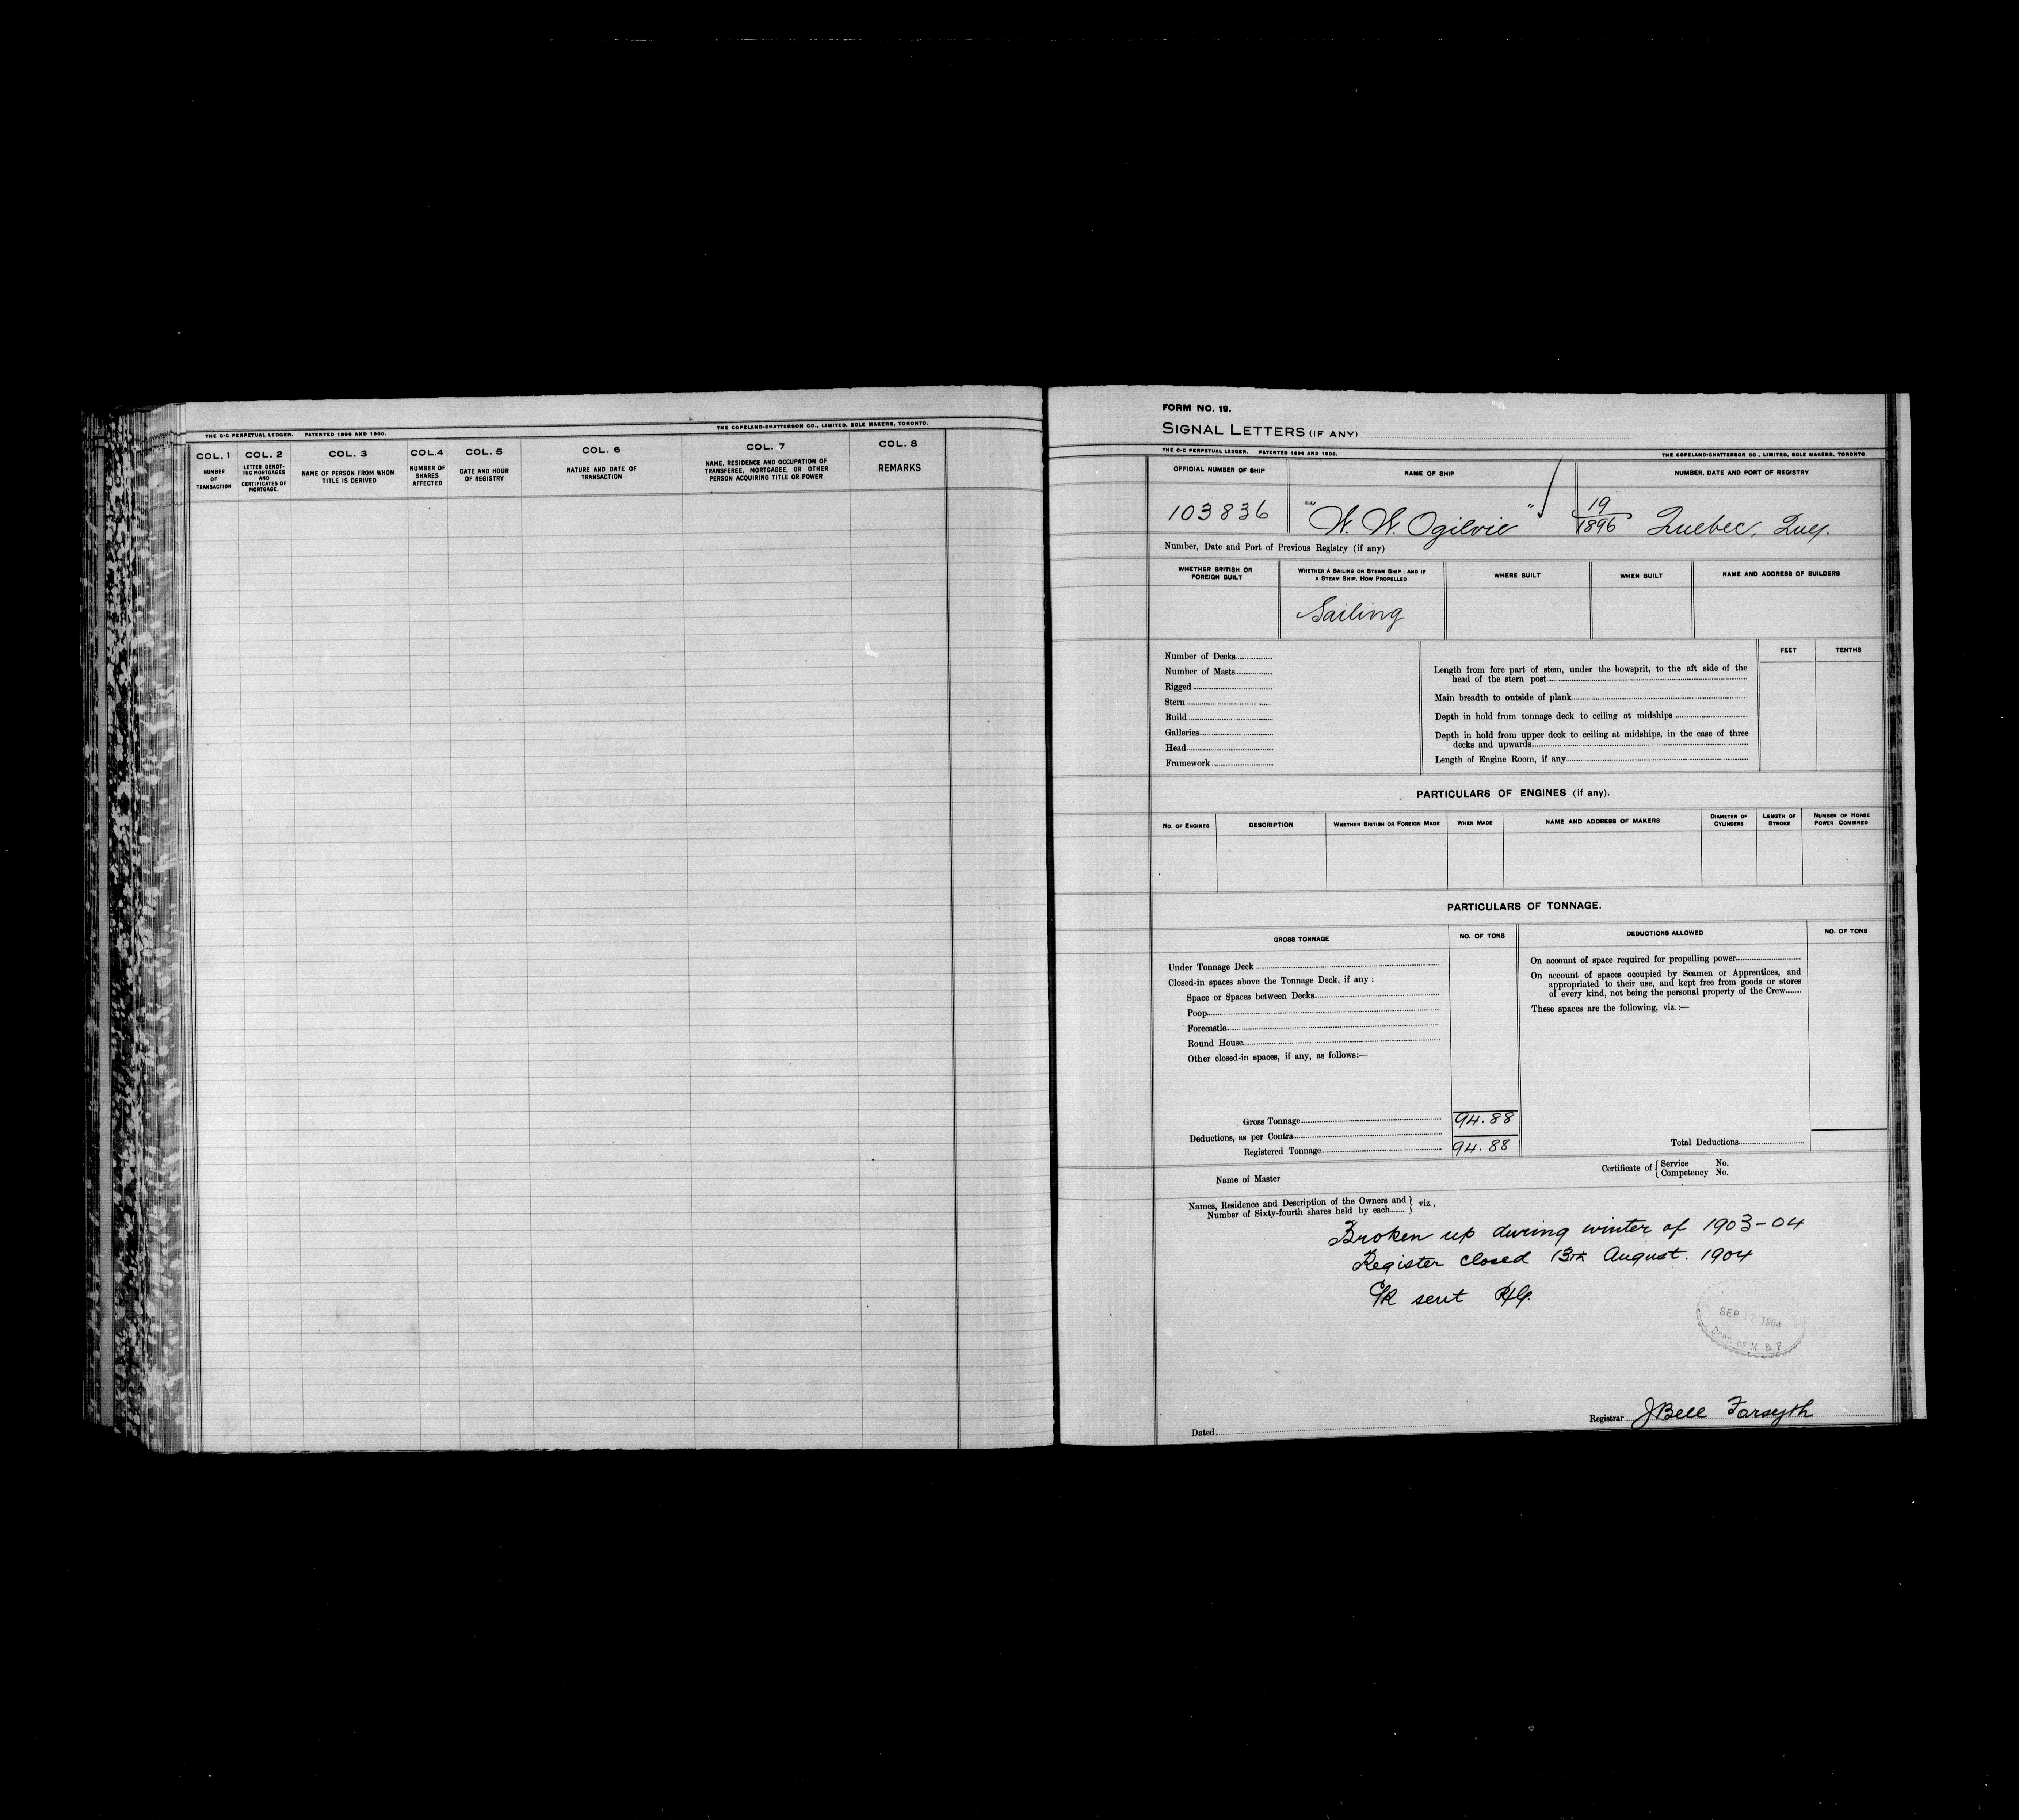 THE C-C PERPETUAL LEDGER. PATENTED 1896 AND 1900. THE COPELAND-CHATTERSON CO., LIMITED, SOLE MAKERS, TORONTO.
COL. 1 COL. 2 COL. 3 COL. 4 COL. 5 COL. 6 COL. 7 COL. 8
NUMBER OF TRANSACTION
LETTER DENOTING MORTGAGES AND CERTIFICATES OF MORTGAGE.
NAME OF PERSON FROM WHOM TITLE IS DERIVED
NUMBER OF SHARES AFFECTED
DATE AND HOUR OF REGISTRY
NATURE AND DATE OF TRANSACTION
NAME, RESIDENCE AND OCCUPATION OF TRANSFEREE, MORTGAGEE, OR OTHER PERSON ACQUIRING TITLE OR POWER
REMARKS
FORM NO. 19.
SIGNAL LETTERS (IF ANY)
THE C-C PERPETUAL LEDGER. PATENTED 1896 AND 1900. THE COPELAND-CHATTERSON CO., LIMITED, SOLE MAKERS, TORONTO.
OFFICIAL NUMBER OF SHIP NAME OF SHIP NUMBER, DATE AND PORT OF REGISTRY
103836 "W. W. Ogilvie" 19/1896 Quebec, Que.
Number, Date and Port of Previous Registry (if any)
WHETHER BRITISH OR FOREIGN BUILT
WHETHER A SAILING OR STEAM SHIP; AND IF A STEAM SHIP, HOW PROPELLED
WHERE BUILT WHEN BUILT NAME AND ADDRESS OF BUILDERS
Sailing
Number of Decks
Number of Masts
Rigged
Stern
Build
Galleries
Head
Framework
FEET TENTHS
Length from fore part of stem, under the bowsprit, to the aft side of the
head of the stern post
Main breadth to outside of plank
Depth in hold from tonnage deck to ceiling at midships
Depth in hold from upper deck to ceiling at midships, in the case of three
decks and upwards
Length of Engine Room, if any
PARTICULARS OF ENGINES (if any).
NO. OF ENGINES DESCRIPTION WHETHER BRITISH OR FOREIGN MADE WHEN MADE NAME AND ADDRESS OF MAKERS DIAMETER OF CYLINDERS LENGTH OF STROKE NUMBER OF HORSE POWER COMBINED
PARTICULARS OF TONNAGE.
GROSS TONNAGE NO. OF TONS DEDUCTIONS ALLOWED NO. OF TONS
Under Tonnage Deck
Closed-in spaces above the Tonnage Deck, if any :
Space or Spaces between Decks
Poop
Forecastle
Round House
Other closed-in spaces, if any, as follows:—
Gross Tonnage 94.88
Deductions, as per Contra
Registered Tonnage 94.88
On account of space required for propelling power
On account of spaces occupied by Seamen or Apprentices, and
appropriated to their use, and kept free from goods or stores
of every kind, not being the personal property of the Crew
These spaces are the following, viz.:—
Total Deductions
Name of Master
Certificate of { Service No.
{ Competency No.
Names, Residence and Description of the Owners and } viz.,
Number of Sixty-fourth shares held by each }
Broken up during winter of 1903-04
Register closed 13th August. 1904
C/R sent
SEP 17 1904
DEPT OF M & F
Registrar J Bell Forsyth
Dated